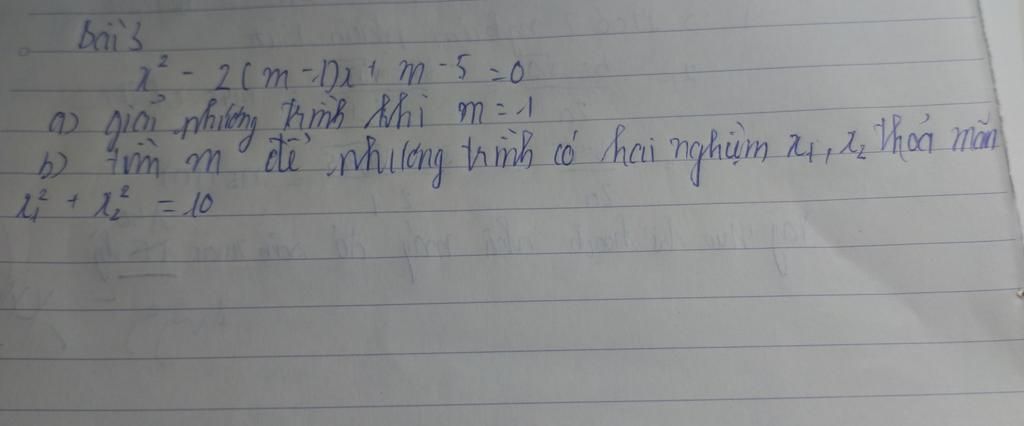 bài 3
x² - 2(m-1)x + m - 5 = 0
a) giải phương trình khi m = 1
b) tìm m để phương trình có hai nghiệm x₁, x₂ thoả mãn
x₁² + x₂² = 10